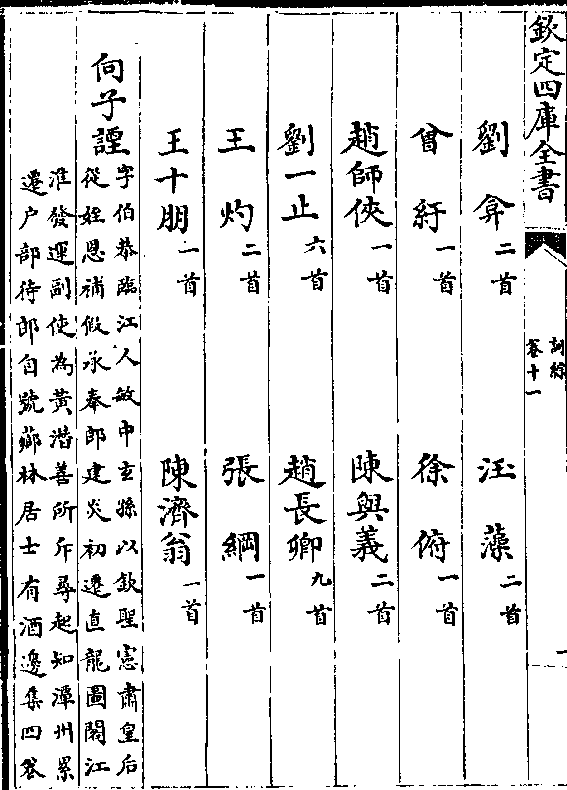 欽定四庫全書
詞綜
卷十一
劉弇二首
汪藻二首
曾紆一首
徐俯一首
趙師俠一首
陳與義二首
劉一止六首
趙長卿九首
王灼二首
張綱一首
王十朋一首
陳濟翁一首
向子諲
字伯恭臨江人敏中玄孫以欽聖憲肅皇后
從姪恩補假承奉郎建炎初遷直龍圖閣江
淮發運副使為黃潛善所斥尋起知潭州累
遷户部侍郎自號薌林居士有酒邊集四卷